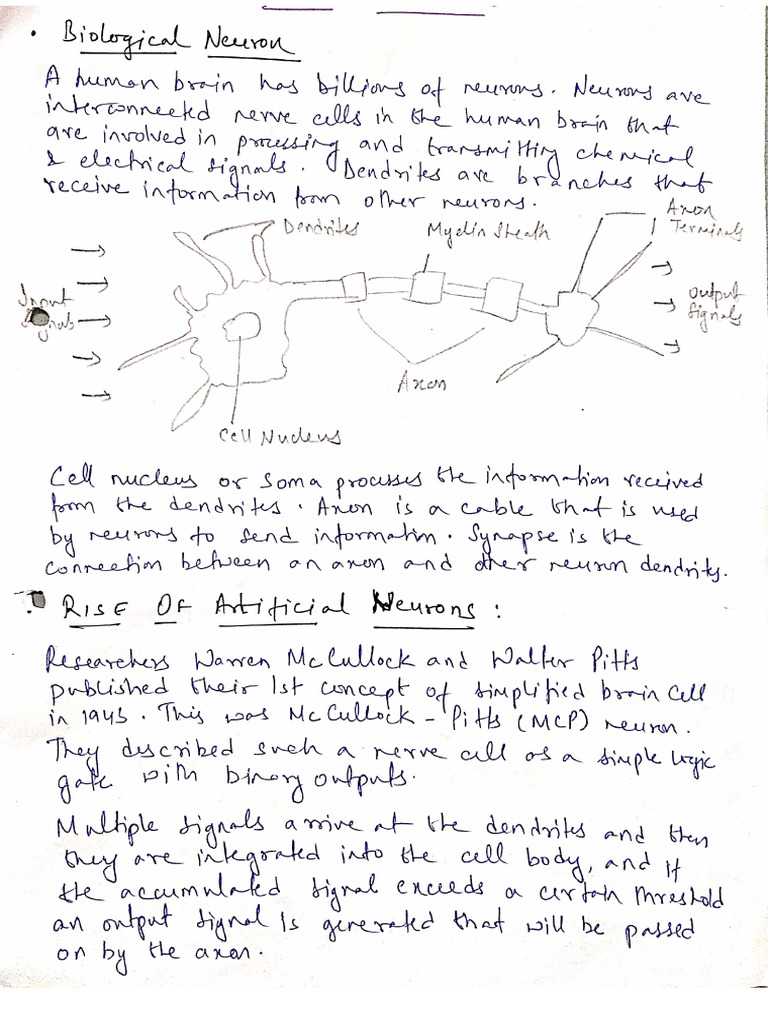 • Biological Neuron
A human brain has billions of neurons. Neurons are
interconnected nerve cells in the human brain that
are involved in processing and transmitting chemical
& electrical signals. Dendrites are branches that
receive information from other neurons.
Dendrites
Myelin Sheath
Axon
Terminals
Input
Signals
Output
Signals
Axon
Cell Nucleus
Cell nucleus or soma processes the information received
from the dendrites. Axon is a cable that is used
by neurons to send information. Synapse is the
connection between an axon and other neuron dendrites.
• RISE OF Artificial Neurons :
Researchers Warren McCullock and Walter Pitts
published their 1st concept of simplified brain cell
in 1943. This was McCullock - Pitts (MCP) neuron.
They described such a nerve cell as a simple logic
gate with binary outputs.
Multiple signals arrive at the dendrites and then
they are integrated into the cell body, and if
the accumulated signal exceeds a certain threshold
an output signal is generated that will be passed
on by the axon.